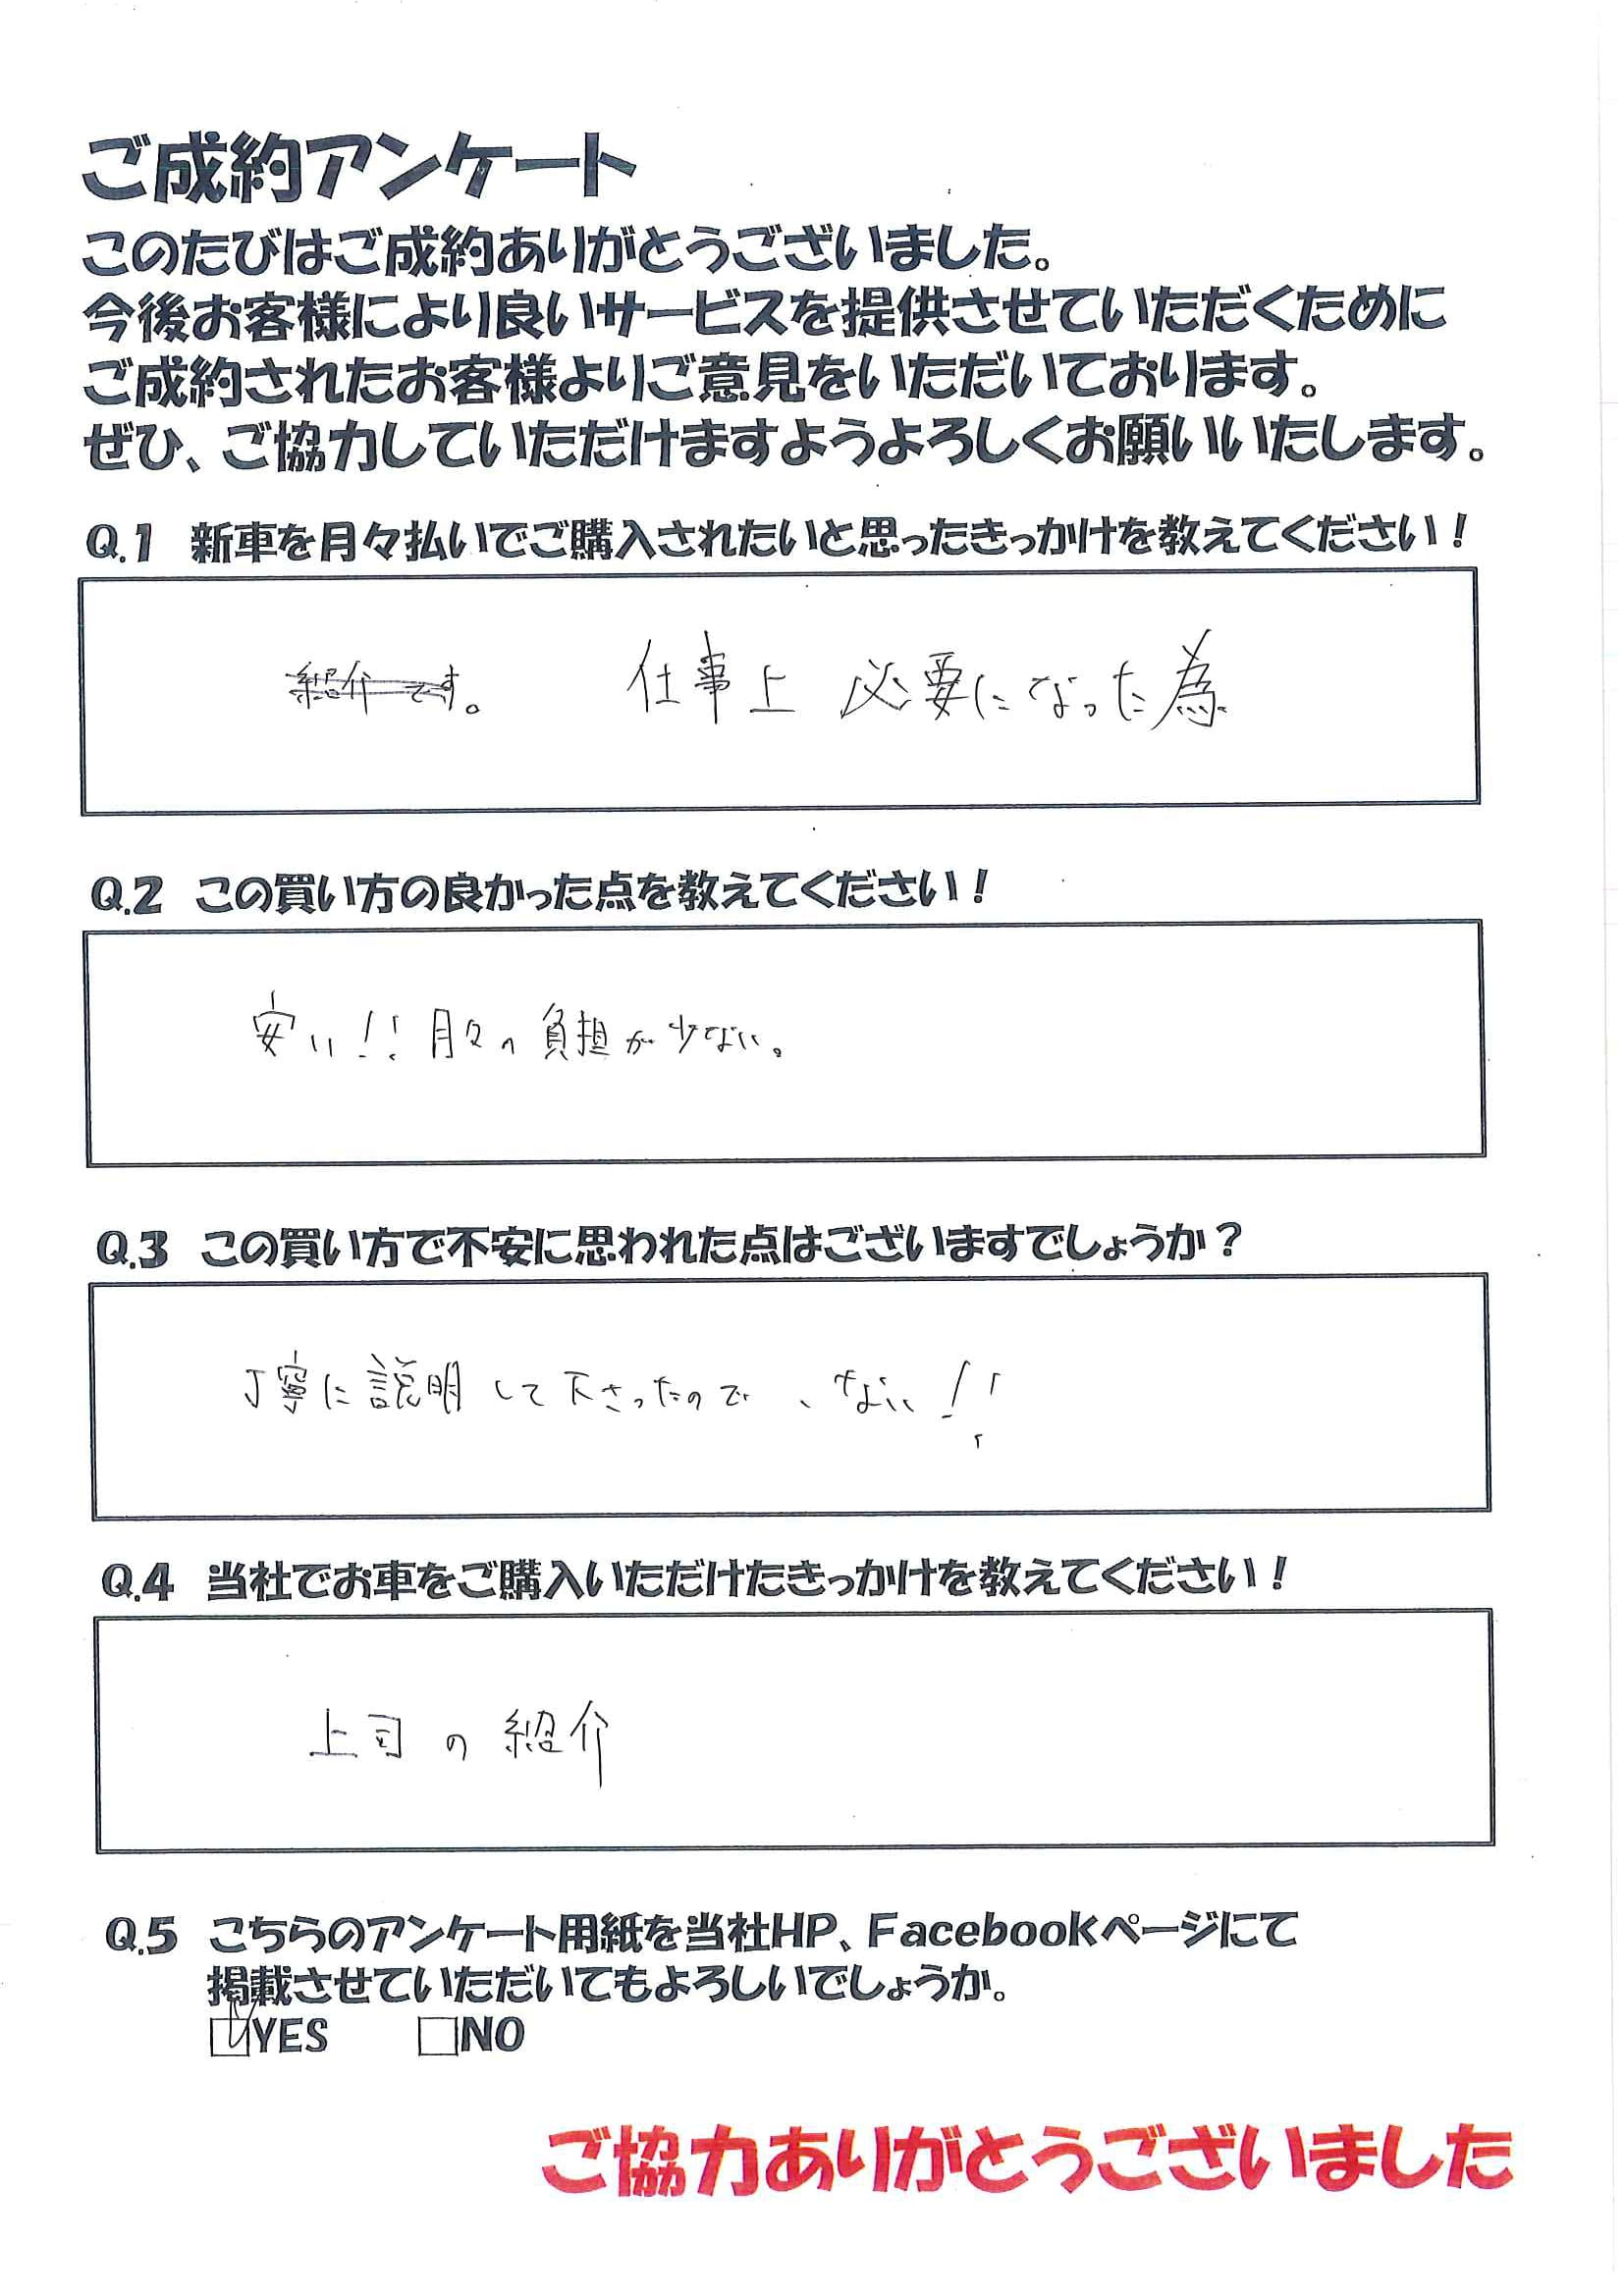 ご成約アンケート
このたびはご成約ありがとうございました。
今後お客様により良いサービスを提供させていただくために
ご成約されたお客様よりご意見をいただいております。
ぜひ、ご協力していただけますようよろしくお願いいたします。
Q.1 新車を月々払いでご購入されたいと思ったきっかけを教えてください！
紹介です。 仕事上 必要になった為
Q.2 この買い方の良かった点を教えてください！
安い！！月々の負担が少ない。
Q.3 この買い方で不安に思われた点はございますでしょうか？
丁寧に説明して下さったので、ない！！
Q.4 当社でお車をご購入いただけたきっかけを教えてください！
上司の紹介
Q.5 こちらのアンケート用紙を当社HP、Facebookページにて
掲載させていただいてもよろしいでしょうか。
YES NO
ご協力ありがとうございました